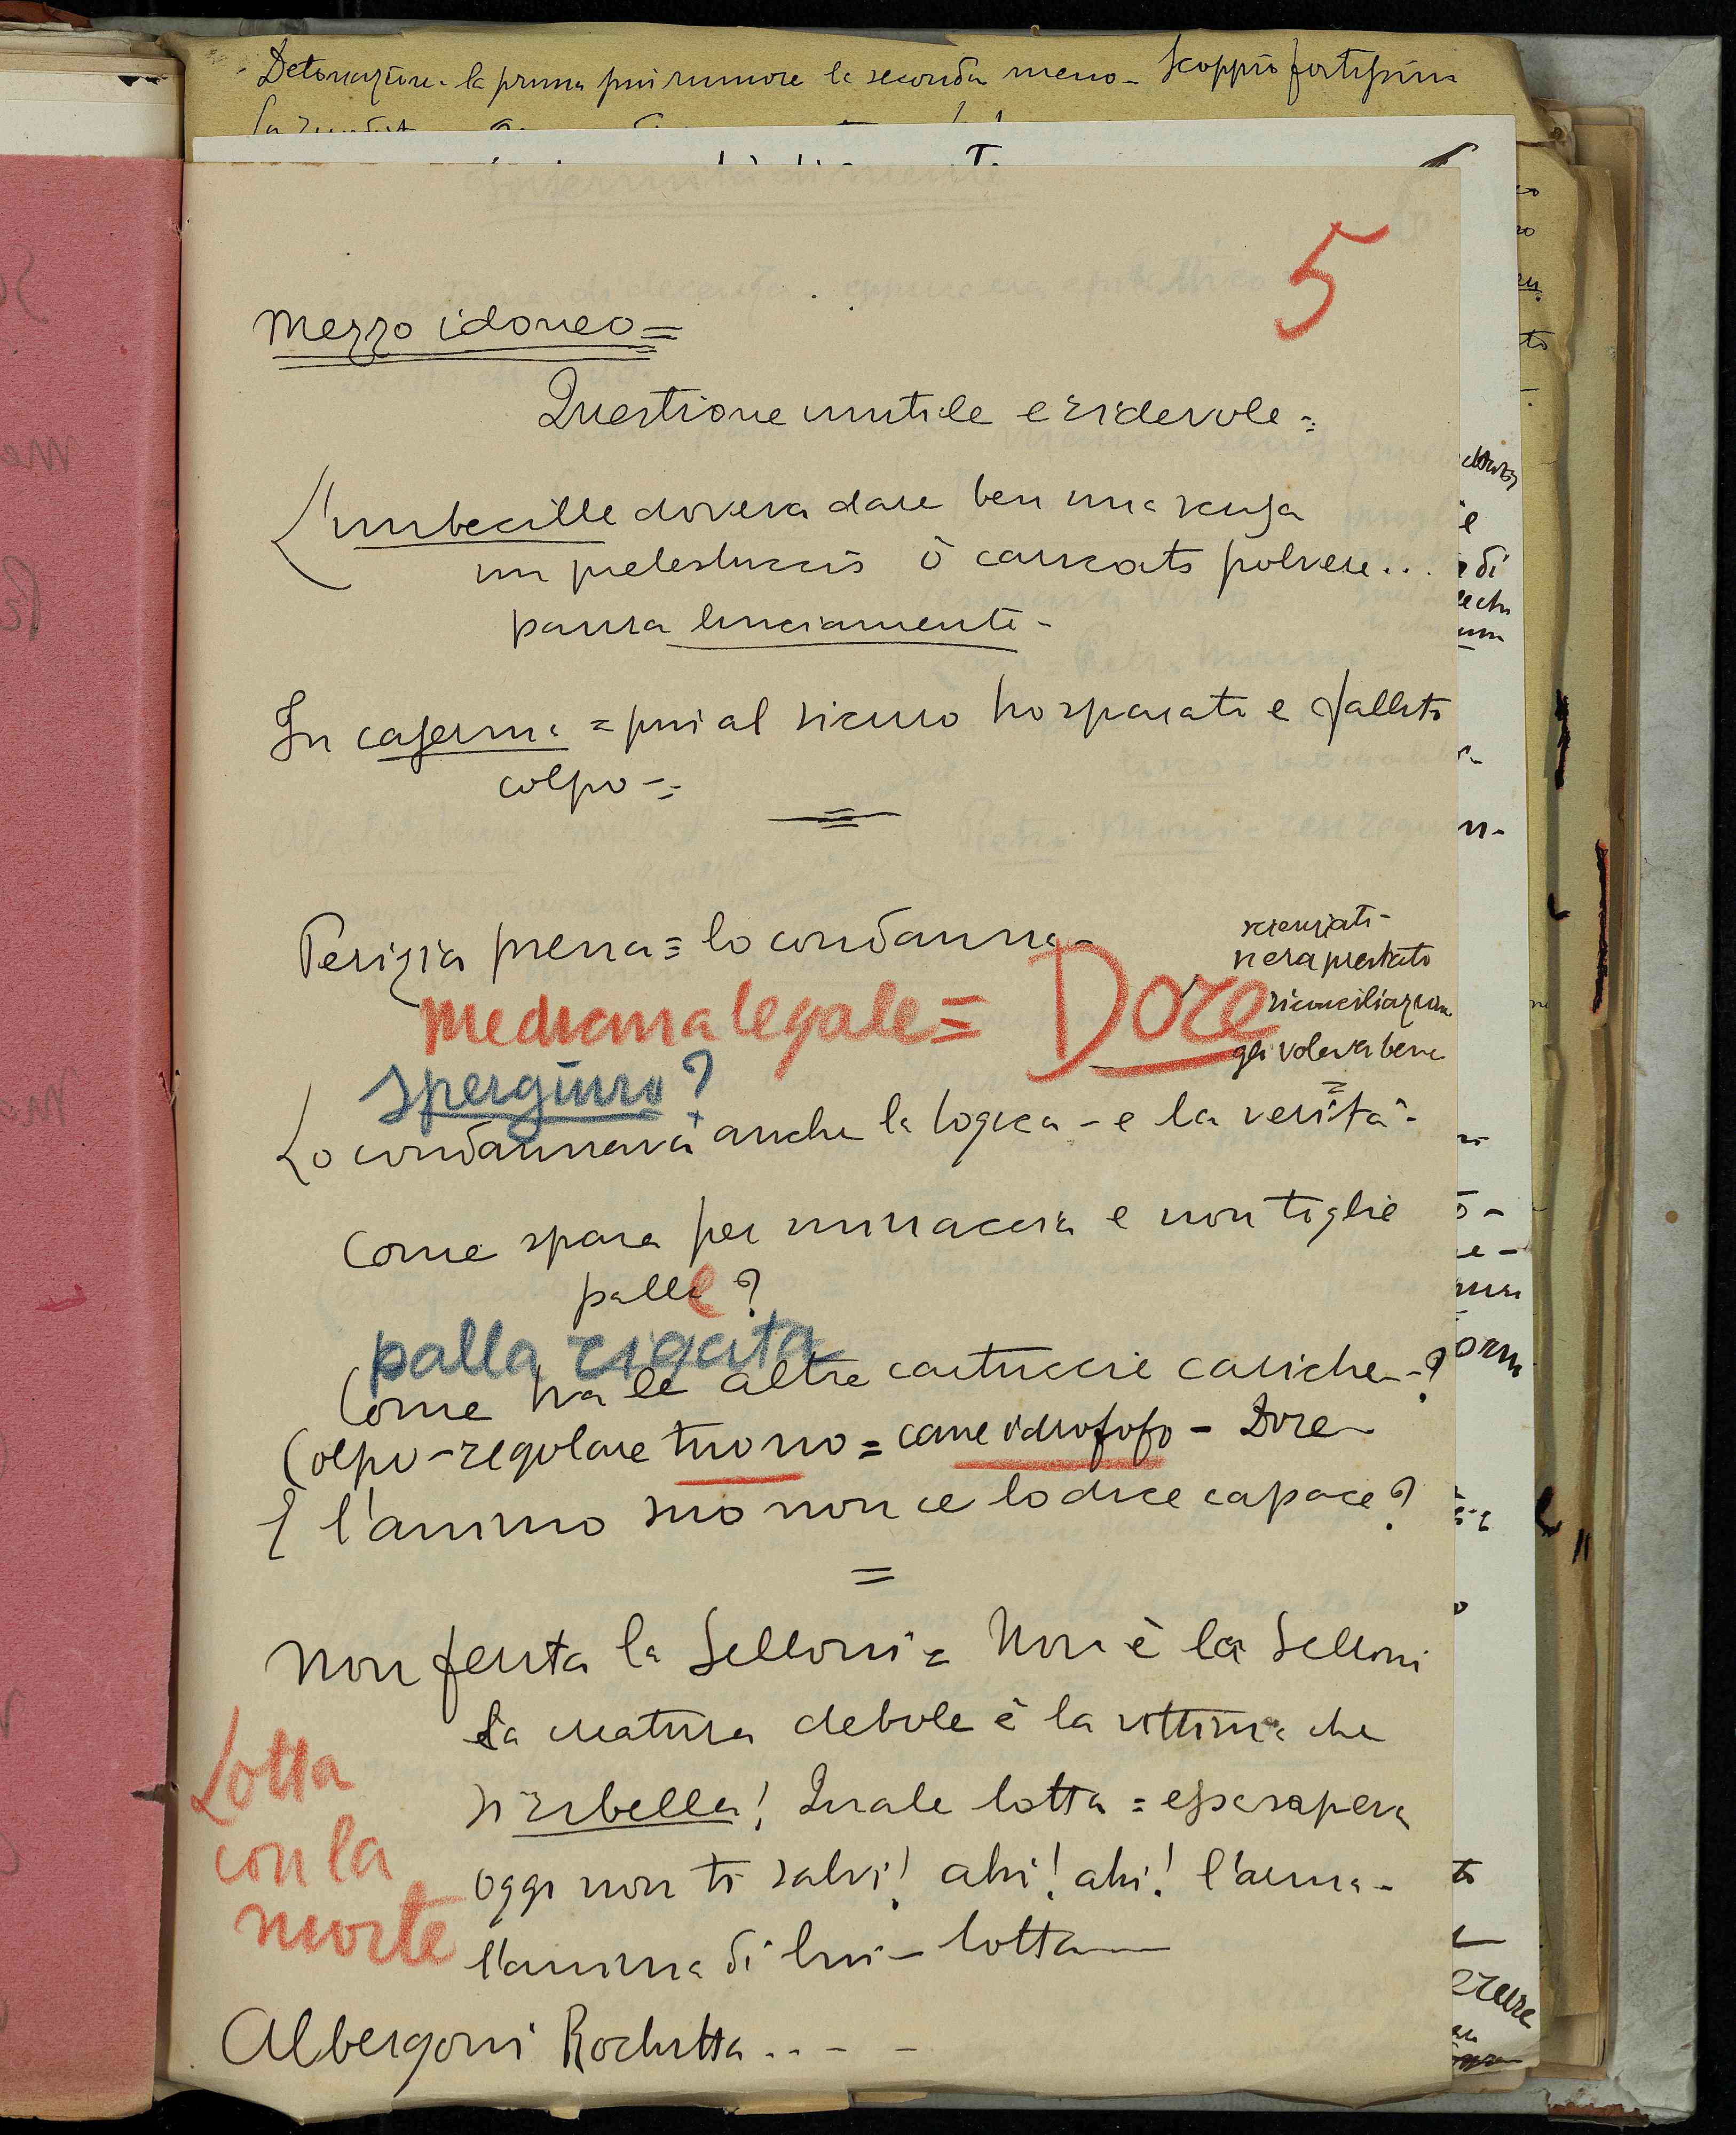 Detonazione - la prima più rumore la seconda meno - Scoppio fortissimo
5
Mezzo idoneo =
Questione inutile e ridevole =
L'imbecille doveva dare ben una scusa
un pretestuccio ò caricato polvere...
paura lucciamente -
In caserma = più al sicuro ho sparato e fallito
colpo - =
Perizia prema = lo condanna -
scienziati -
s'era prestato
riconciliazione
gli voleva bene
=
Medicina legale = Dore
spergiuro?
Lo condannava anche la logica - e la verità -
Come spara per minaccia e non toglie
palle?
palla rigata
Come ha le altre cartuccie cariche - ?
Colpo - regolare tuono = cane idrofofo - Dore
E l'animo suo non ce lo dice capace?
=
Non ferita la Selloni = Non è la Selloni
La creatura debole è la vittima che
si ribella! Quale lotta = essa sapeva
oggi non ti salvi! ahi! ahi! l'arma -
l'anima di lui - lotta
Lotta
con la
morte
Albergoni Rochetta . . - -